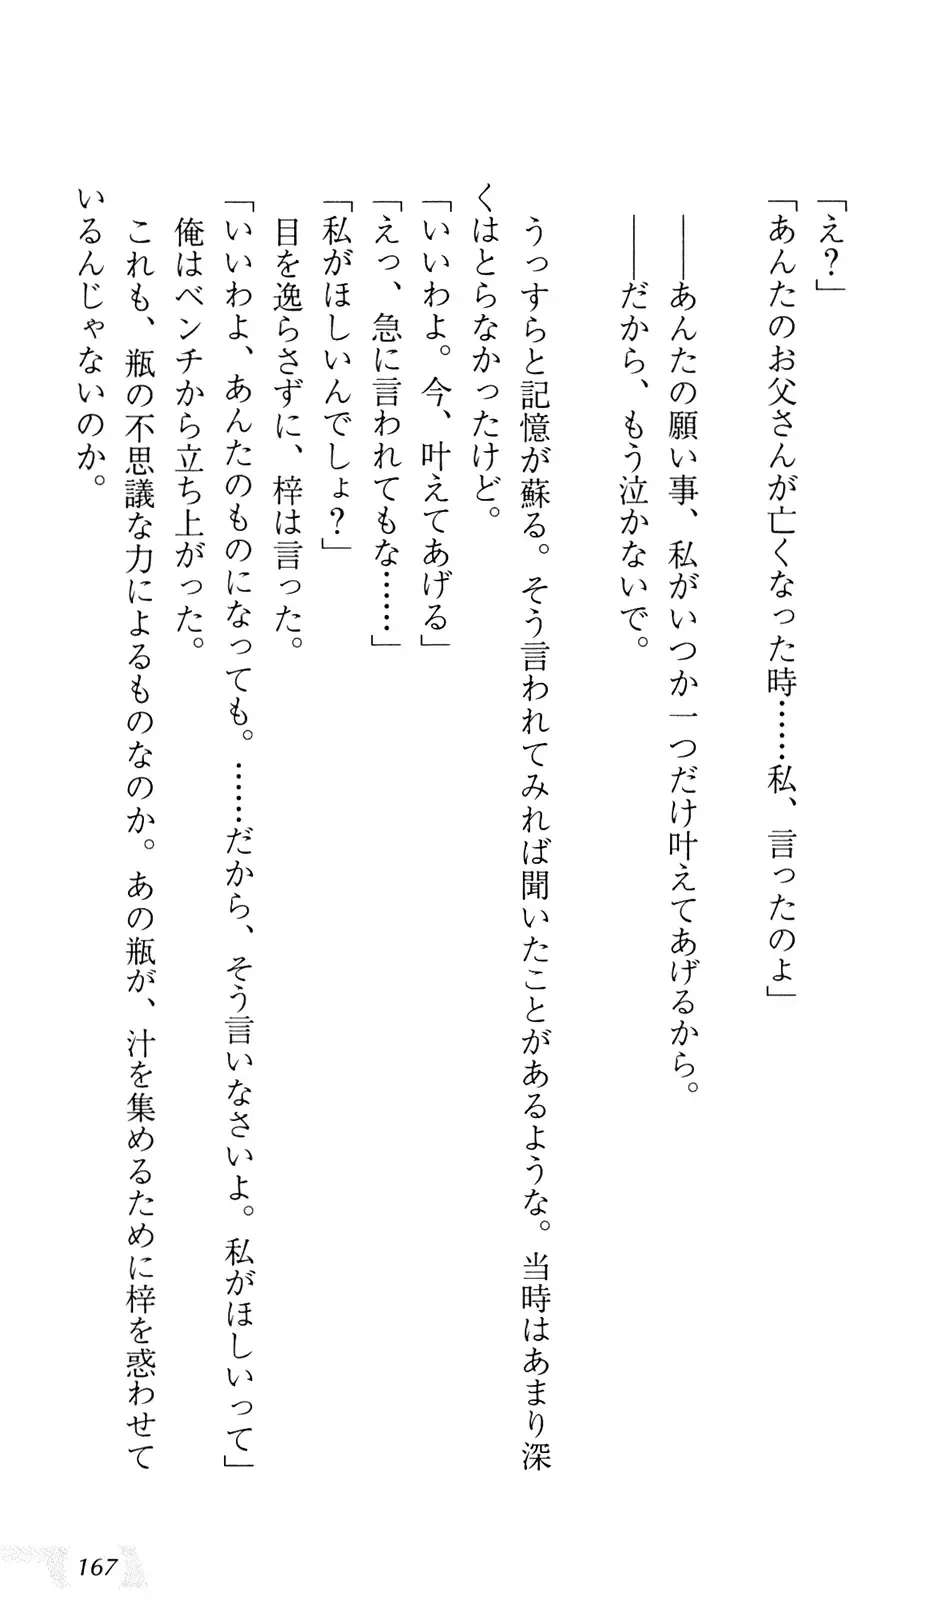 「え？」
「あんたのお父さんが亡くなった時……私、言ったのよ」
――あんたの願い事、私がいつか一つだけ叶えてあげるから。
――だから、もう泣かないで。
うっすらと記憶が蘇る。そう言われてみれば聞いたことがあるような。当時はあまり深
くはとらなかったけど。
「いいわよ。今、叶えてあげる」
「えっ、急に言われてもな……」
「私がほしいんでしょ？」
目を逸らさずに、梓は言った。
「いいわよ、あんたのものになっても。……だから、そう言いなさいよ。私がほしいって」
俺はベンチから立ち上がった。
これも、瓶の不思議な力によるものなのか。あの瓶が、汁を集めるために梓を惑わせて
いるんじゃないのか。
167